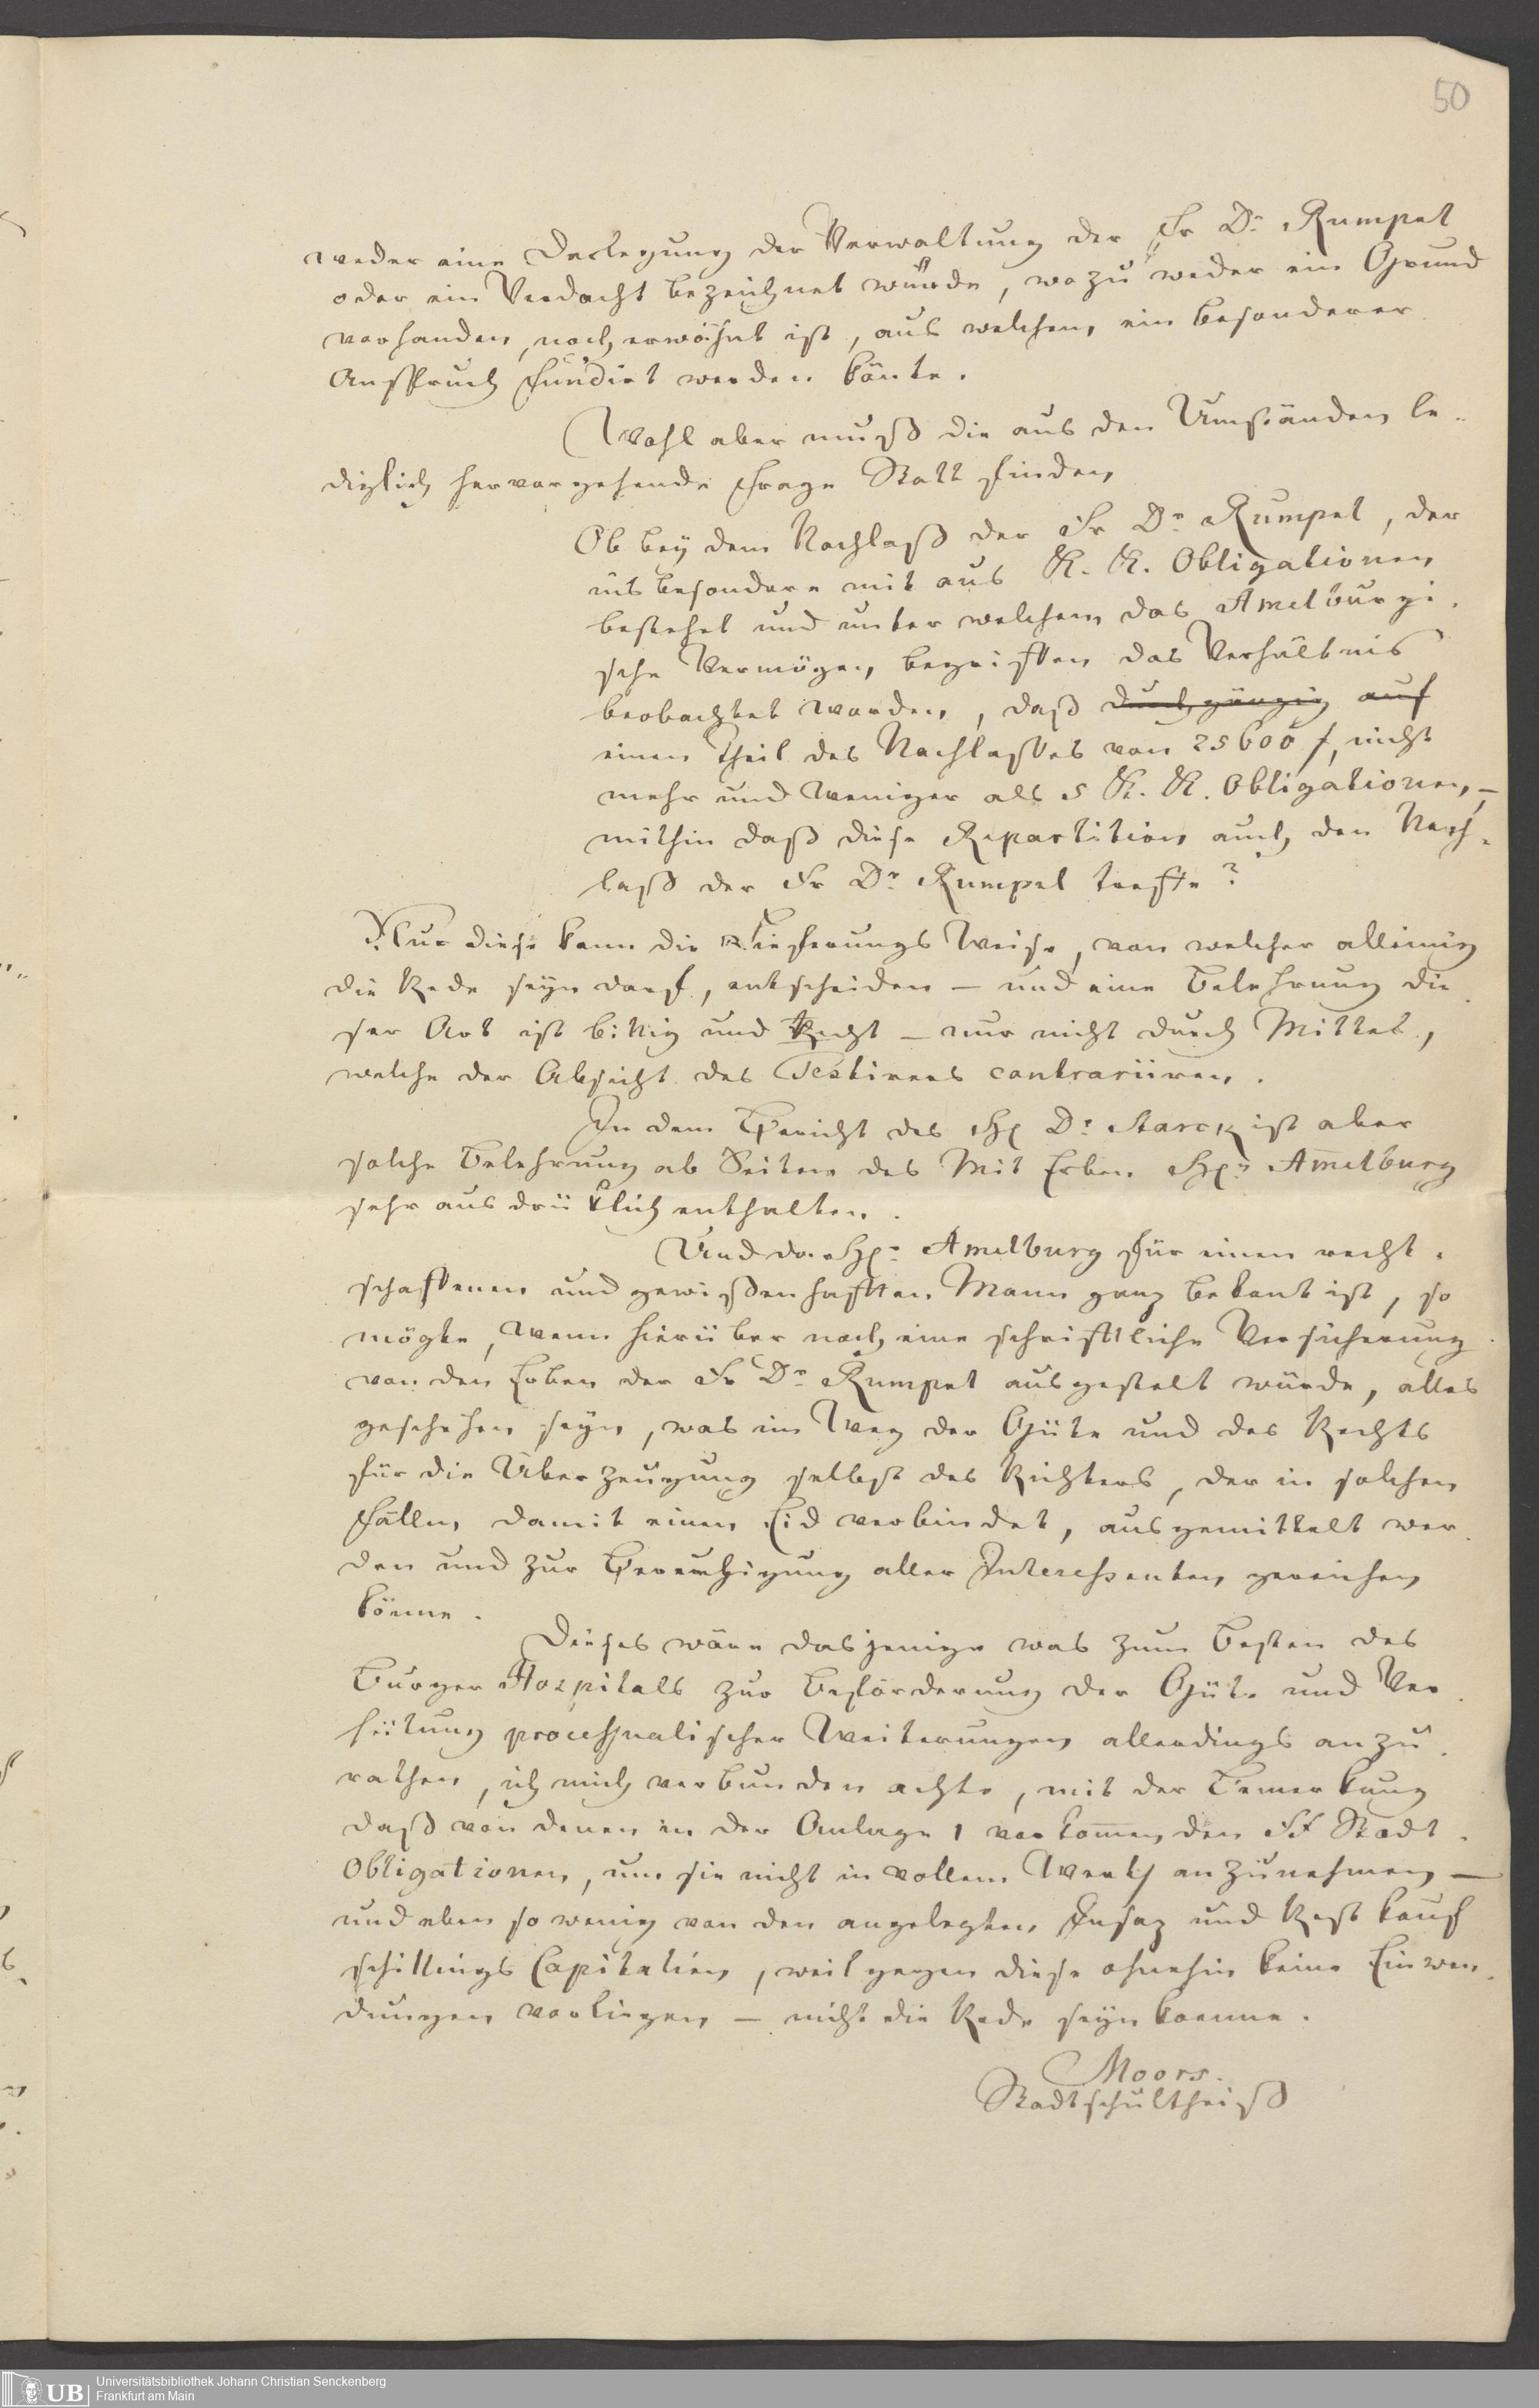 50
weder eine Darlegung der Verwaltung der Fr Dr Rumpel
oder ein Verdacht bezeichnet würde, wozu weder ein Grund
vorhanden, noch erwähnt ist, aus welchem ein besonderer
Anspruch fundirt werden könte.
Wohl aber muß die aus den Umständen le-
diglich hervorgehende Frage Statt finden
Ob bey dem Nachlaß der Fr Dr Rumpel, der
insbesondere mit aus K. K. Obligationen
bestehet und unter welchem das Amelburgi-
sche Vermögen begriffen das Verhältnis
beobachtet worden, daß durchgängig auf
einen Theil des Nachlaßes von 25600 f, nicht
mehr und weniger als 5 K. K. Obligationen, –
mithin daß diese Repartition auch den Nach-
laß der Fr Dr Rumpel treffe?
Nur diese kann die Lieferungs Weise, von welcher alleinig
die Rede seyn darf, entscheiden – und eine Belehrung die-
ser Art ist billig und Recht – nur nicht durch Mittel,
welche der Absicht des Testirers contrariiren.
In dem Bericht des H Dr Starck ist aber
solche Belehrung ab Seiten des Mit Erben H Amelburg
sehr ausdrüklich enthalten.
Und da H Amelburg für einen recht-
schaffenen und gewißenhafften Mann ganz bekant ist, so
mögte, wenn hierüber noch eine schriftliche Versicherung
von den Erben der Fr Dr Rumpel ausgestelt würde, alles
geschehen seyn, was im Weg der Güte und des Rechts
für die Überzeugung selbst des Richters, der in solchen
Fällen damit einen Eid verbindet, ausgemittelt wer-
den und zur Beruhigung aller Interessenten gereichen
könne.
Dieses wäre dasjenige was zum Besten des
Burger Hospitals zur Beförderung der Güte und Ver-
hütung processualischer Weiterungen allerdings anzu-
rathen, ich mich verbunden achte, mit der Bemerkung
daß von denen in der Anlage 1 vorkommenden Stadt-
Obligationen, um sie nicht in vollem Werth anzunehmen –
und eben so wenig von den angelegten Insaz und Rest kauf
schillings Capitalien, weil gegen diese ohnehin keine Einwen-
dungen vorliegen – nicht die Rede seyn koenne.
Moors.
Stadtschultheiß
UB
Universitätsbibliothek Johann Christian Senckenberg
Frankfurt am Main